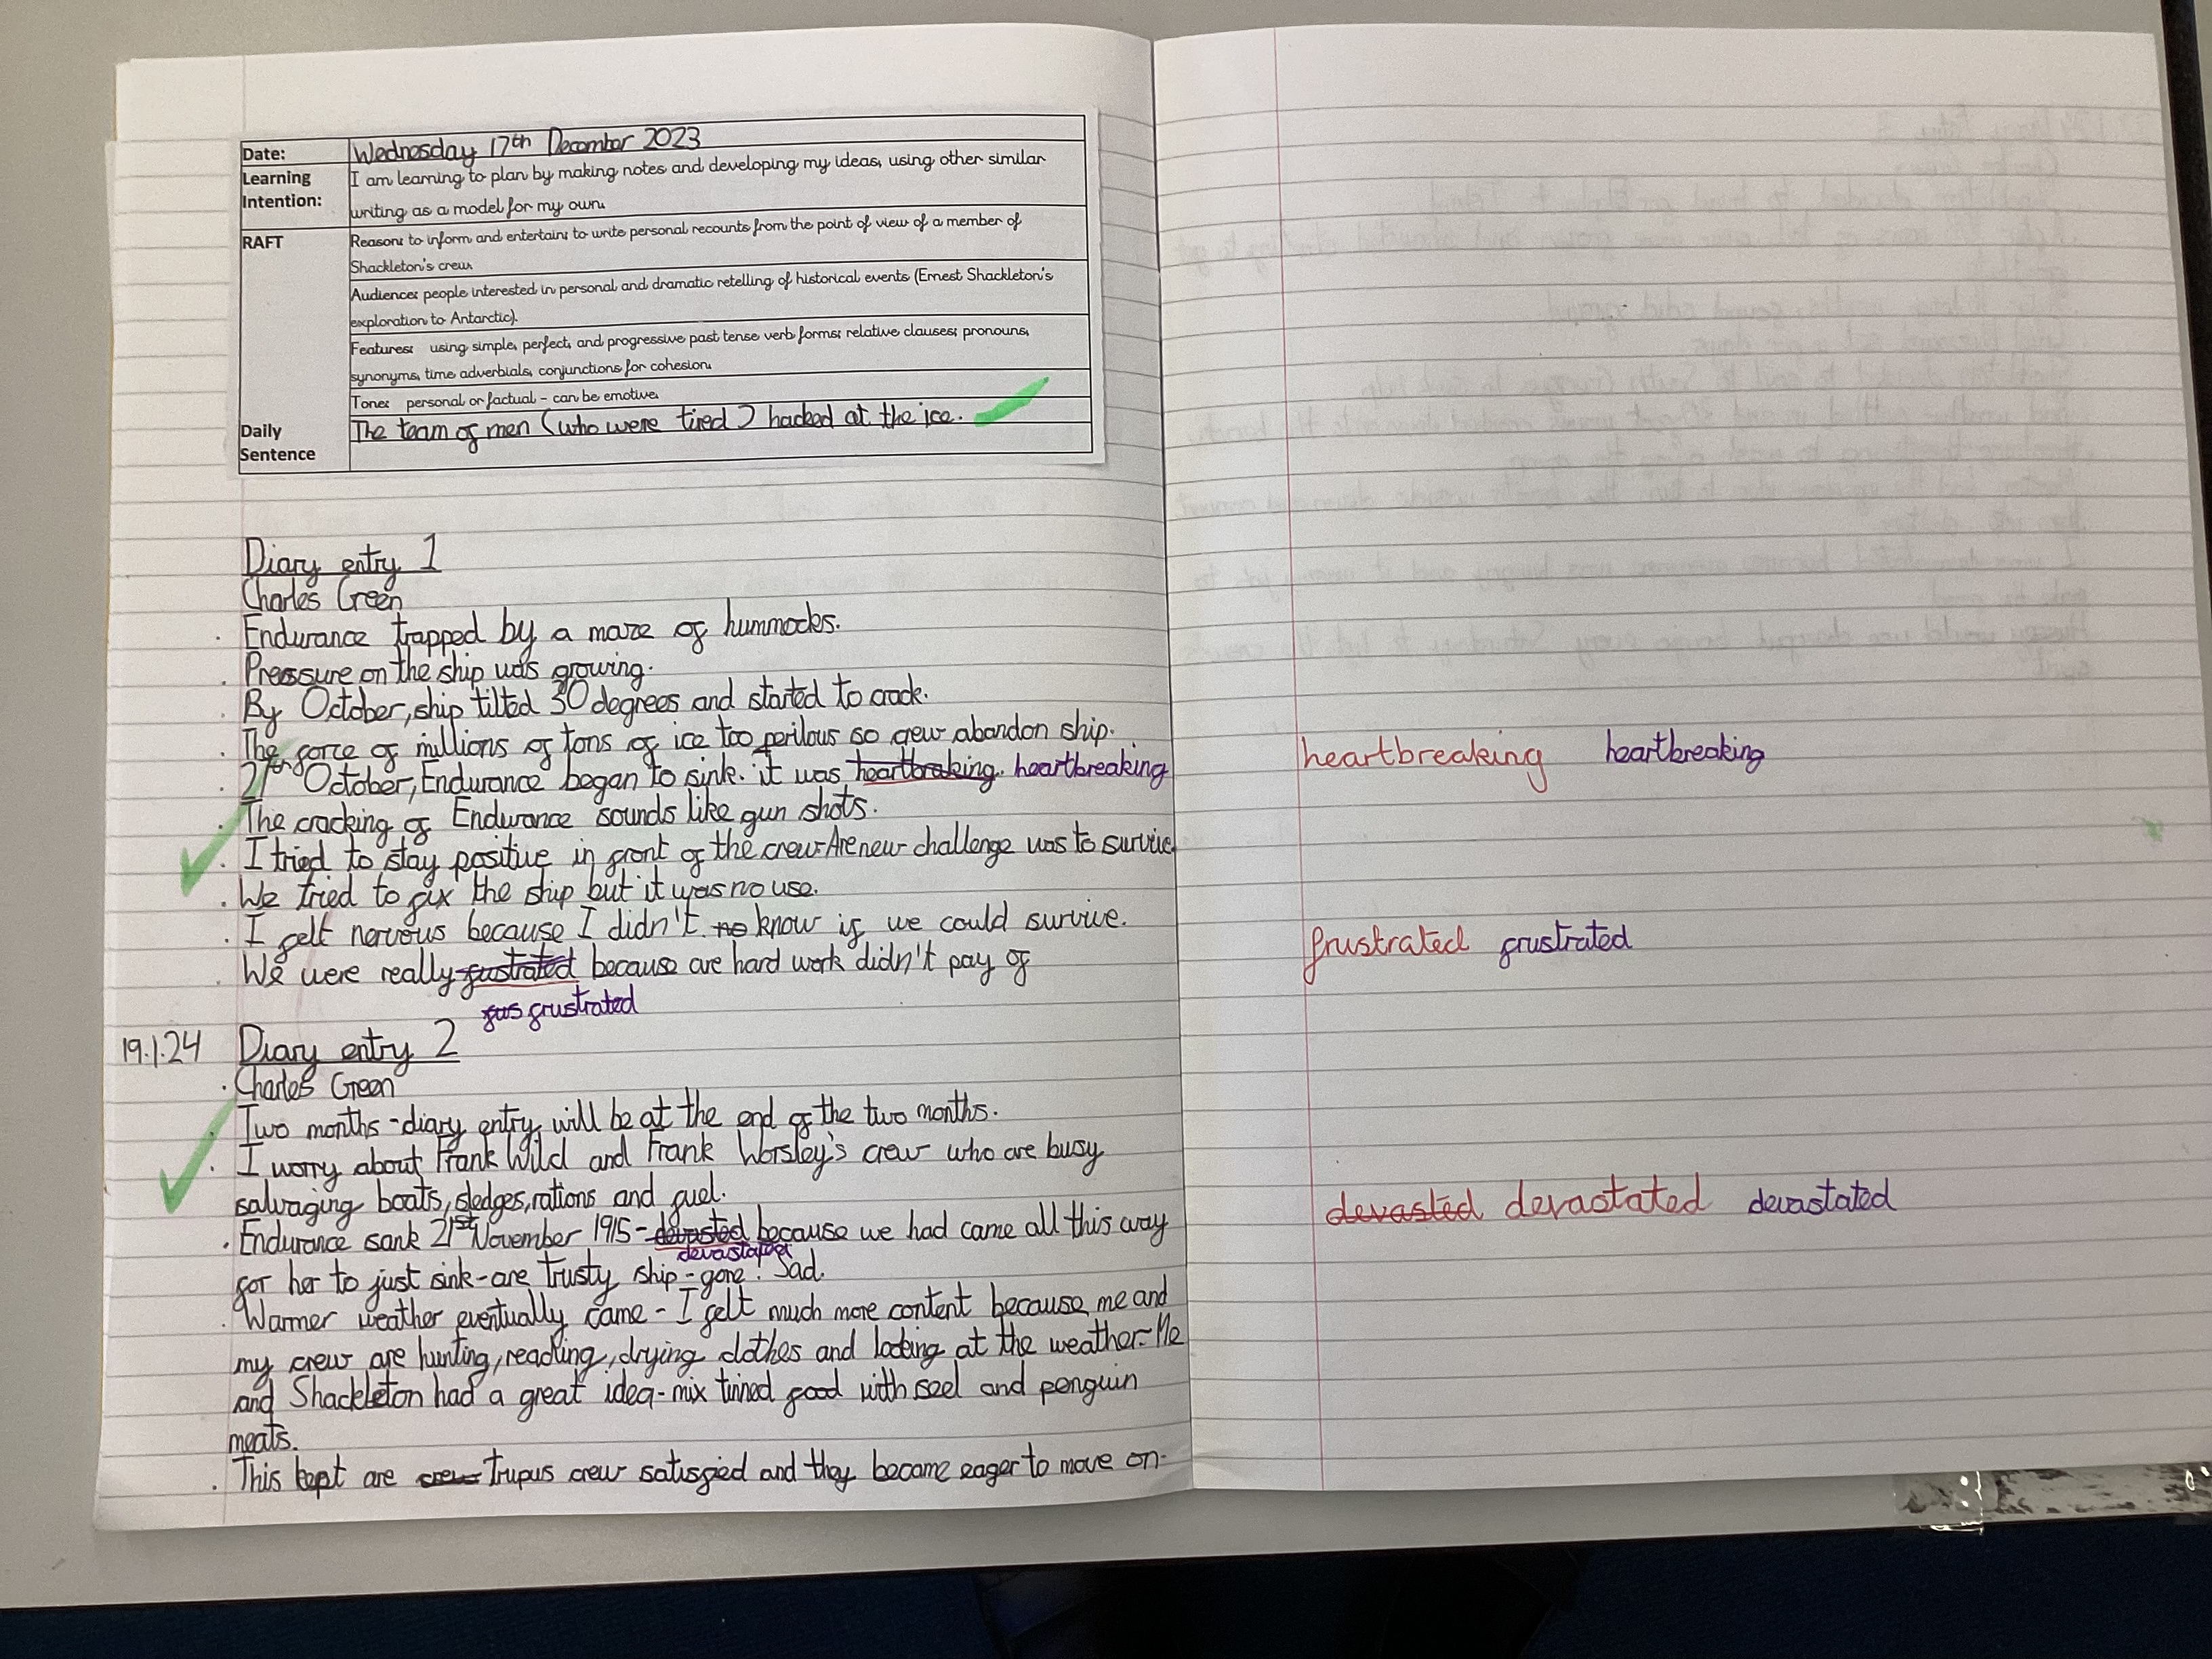 Date: Wednesday 17th December 2023
Learning Intention: I am learning to plan by making notes and developing my ideas, using other similar
writing as a model for my own.
RAFT Reason: to inform and entertain: to write personal recounts from the point of view of a member of
Shackleton's crew.
Audience: people interested in personal and dramatic retelling of historical events (Ernest Shackleton's
exploration to Antarctic).
Features: using simple, perfect, and progressive past tense verb forms; relative clauses; pronouns,
synonyms, time adverbials, conjunctions for cohesion.
Tone: personal or factual - can be emotive.
Daily Sentence The team of men (who were tired) hacked at the ice.
Diary entry 1
Charles Green
. Endurance trapped by a maze of hummocks.
. Pressure on the ship was growing.
. By October, ship tilted 30 degrees and started to crack.
. The force of millions of tons of ice too perilous so crew abandon ship.
. 27th October, Endurance began to sink. it was heartbraking. heartbreaking
heartbreaking heartbreaking
. The cracking of Endurance sounds like gun shots.
. I tried to stay positive in front of the crew-Are new challenge was to survive
. We tried to fix the ship but it was no use.
. I felt nervous because I didn't no know if we could survive.
. We were really fustrated because are hard work didn't pay of
frustrated frustrated
fus frustrated
19.1.24 Diary entry 2
. Charles Green
. Two months - diary entry will be at the end of the two months.
. I worry about Frank Wild and Frank Worsley's crew who are busy
salvaging boats, sledges, rations and fuel.
. Endurance sank 21st November 1915 - devasted because we had came all this way
devastated
devasted devastated devastated
for her to just sink - are trusty ship - gone! Sad.
. Warmer weather eventually came - I felt much more content because me and
my crew are hunting, reading, drying clothes and looking at the weather-Me
and Shackleton had a great idea - mix tinned food with seel and penguin
meats.
. This kept are crew trupus crew satisfied and they became eager to move on.